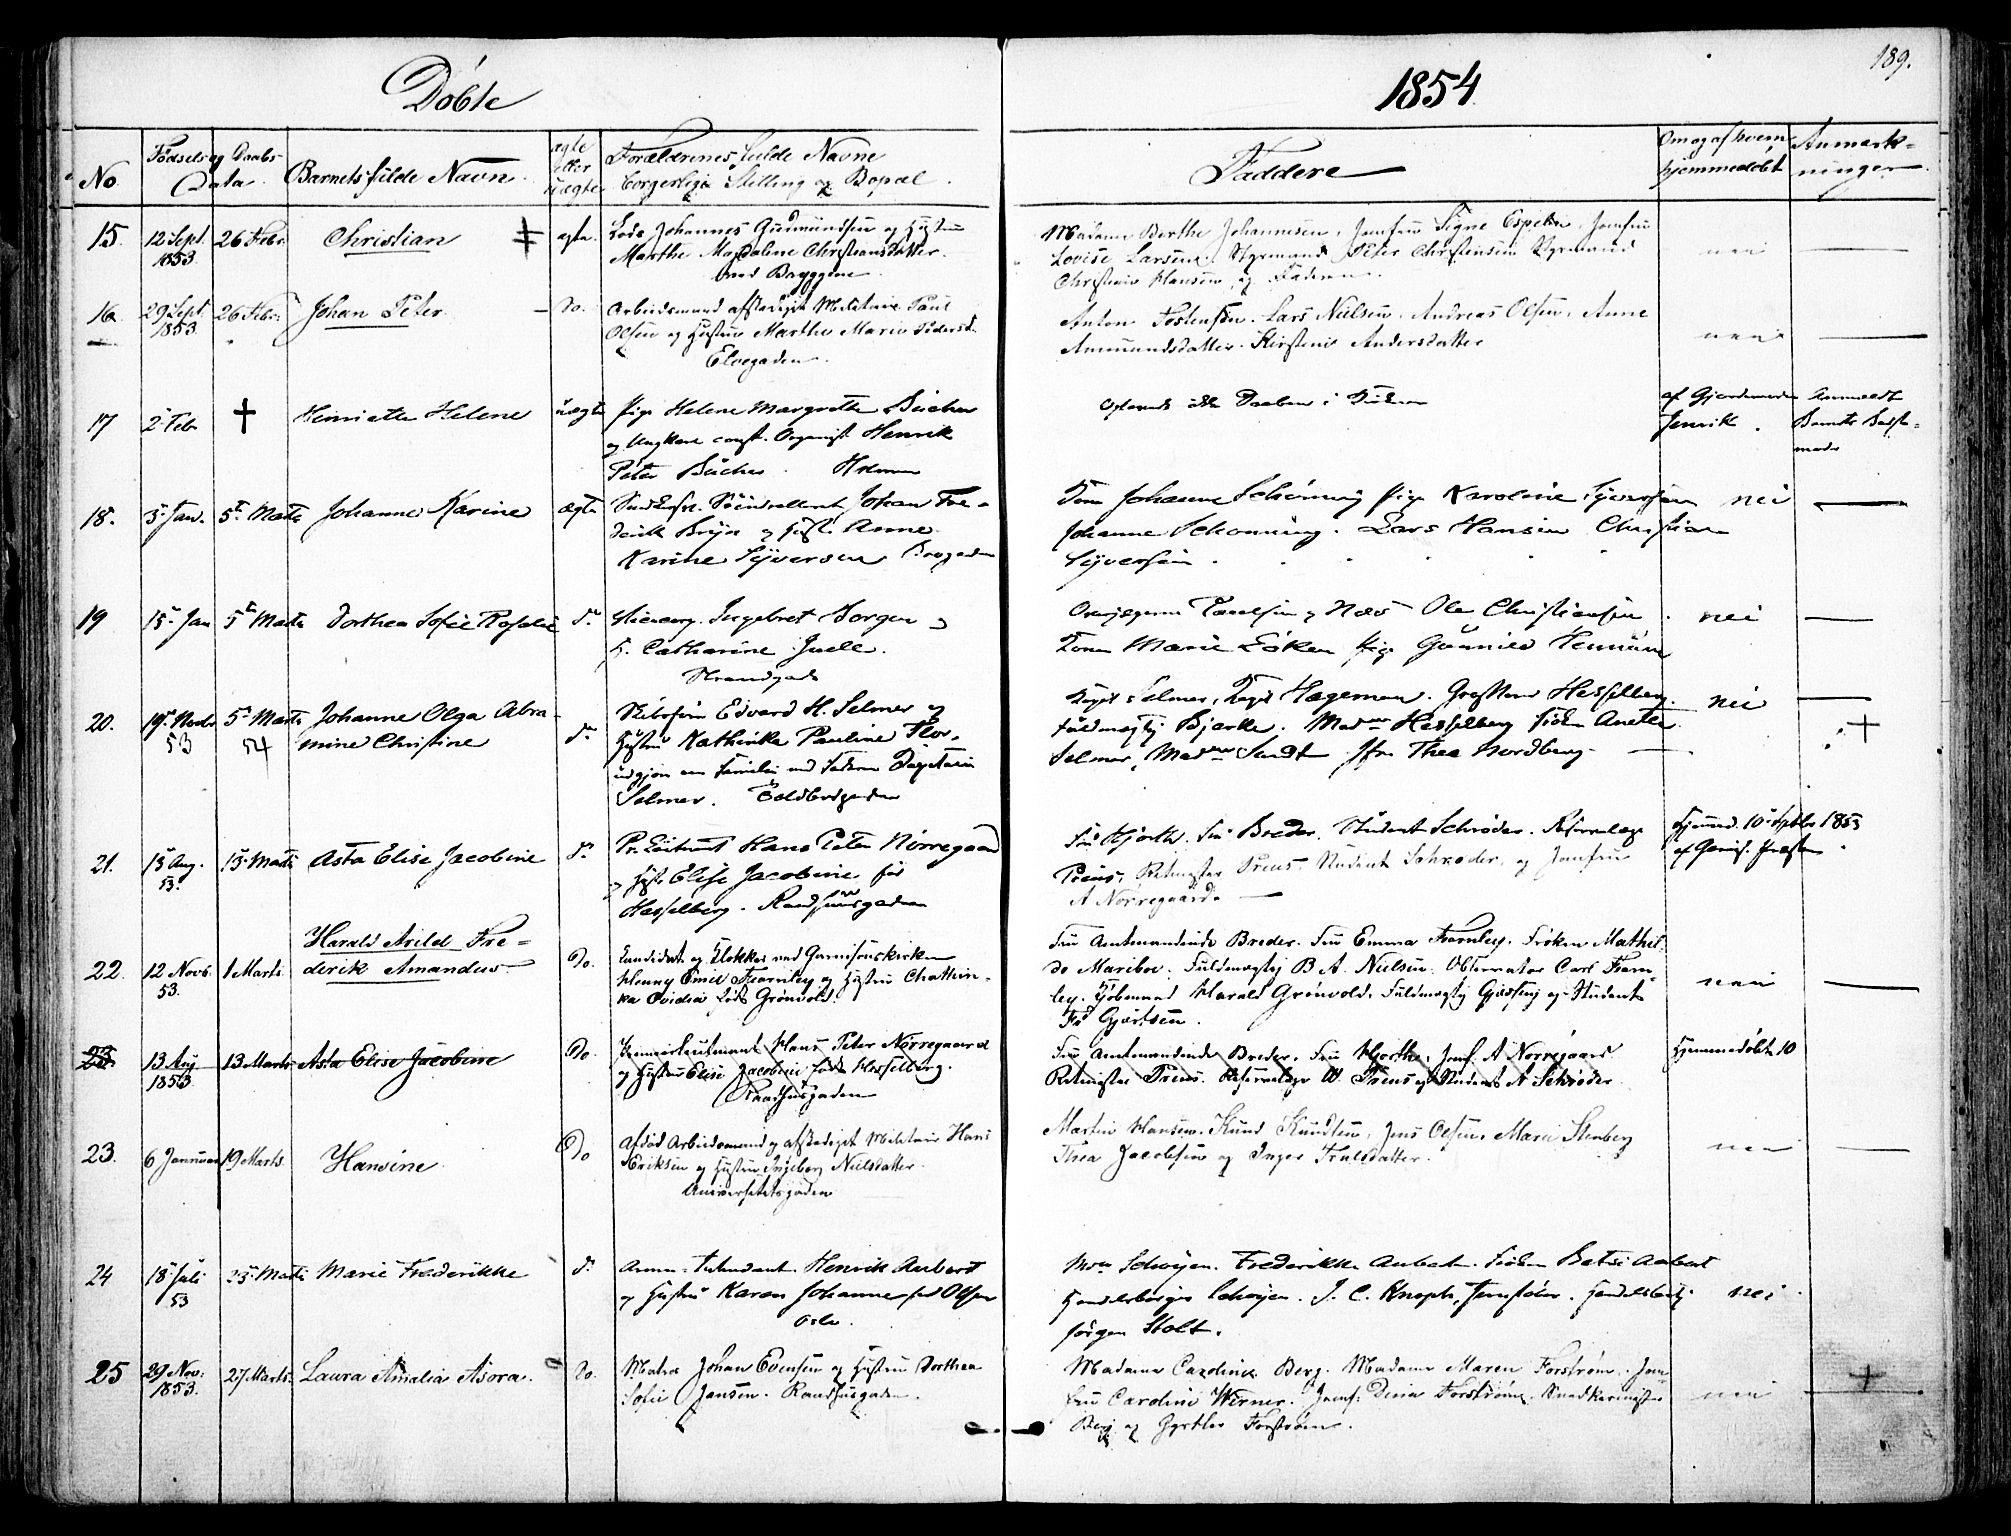 189.
Döbte
1854
No
Födsels og Daabs
Data
Barnets fulde Navn
ægte eller uægte
Forældrenes fulde Navne
borgerlige Stilling og Bopæl
Faddere
Om og af hvem
hjemmedöbt
Anmærk-
ninger
15. 12 Sept. 1853 26 Febr. Christian ægte
Johannes Gudmundsen og Hustru
Marthe Magdalene Christiansdatter
ved Bryggene
Madame Berthe Johannesen, Jomfru Signe Espelin, Jomfru
Lovise Larsen, Styrmand Peter Christensen Styrmand
Christian Hansen, og Faderen
nei
16. 29 Sept. 1853 26 Febr. Johan Peter Do.
Arbeidsmand afskediget Militair Paul
Olsen og Hustru Marthe Marie Pedersd.
Elvegaden
Anton Tostensen. Lars Nielsen. Andreas Olsen. Anne
Amundsdatter. Kirstine Andersdatter
nei
17 2 Febr † Henriette Helene uægte
Pige Helene Margrethe Bücher
og Ungkarl const. Organist Henrik
Peter Bücher
af Gjordemoder
Barnets
18. 5 Jan. 5te Marts Johanne Karine ægte
Johan Fre-
derik Bryn og Hust. Anne
Karine Syversen
Kone Johanne Schönning Pige Karoline Syversen
Johanne Schönning. Lars Hansen Christian
Syversen
nei
19 15 Jan 5te Marts Dorthea Sofie Rosalie do
Ingebret Jorgen og
H. Catharine Juell.
Strandgade
Ole Christiansen
Kone Marie Löken Pige Gunnild
nei
20. 19 Novbr 53 5te Marts 54 Johanne Olga Abra-
mine Christine do
Skibsförer Edvard H. Selmer og
Hustru Kathinka Pauline Flor.
udgjör en Familie med Faderen
Selmer. Toldbodgaden
Capt Selmer, Capt Hageman. Hesselberg
Fuldmægtig Bjerke. Madme Hesselberg Fröken Anette
Selmer, Madme Sundt Jfr Thea Nordberg
nei
21. 13 Aug. 53. 13 Marts Asta Elise Jacobine do
Pr. Leitnant Hans Peter Nörregaard
og Hust. Elise Jacobine föd
Hesselberg. Raadhuusgaden
Fru Hjorth. Fru Breder. Student Schröder. Reservelæge
Preus. Ritmester Preus. Student Schröder, og Jomfru
A Nörregaard.
Hjemmed. 10 Septbr 1853
af Garnis. Præsten
22. 12 Novb. 53. 1 Marts. Harald Arild Fre-
derik Amandus Do.
Candidat og Klokker ved Garnisonskirken
Henny Emil Fearnley og Hustru Chathin-
ka Ovidia födt Grönvold.
Fru Amtmandinde Breder. Fru Emma Fearnley. Fröken Mathil-
de Mariboe. Fuldmægtig B. A. Nielsen. Observator Carl Fearn-
ley. Kjöbmand Harald Grönvold. Fuldmægtig Gjæstrig og Student
Gjörtsen.
nei
23. 13 Aug 1853 13 Marts Asta Elise Jacobine Do.
Premierleutnant Hans Peter Nörregaard
og Hustru Elise Jacobine födt Hesselberg.
Raadhusgaden
Fru Amtmandinde Breder. Fru Hjorth. Jomf. A Nörregaard
Ritmester Preus. Reservelæge W. Preus og Student A Schröder.
Hjemmedöbt 10
23. 6 Januar 19 Marts Hansine Do
Afdöd Arbeidsmand og afskediget Militair Hans
Eriksen og Hustru Ingeborg Nielsdatter
Universitetsgaden
Martin Hansen. Knud Knudsen, Jens Olsen. Marie Stenberg
Thea Jacobsen og Inger Trulsdatter.
nei
24 18 Juli 53 25 Marts Marie Frederikke do
Henrik Aubert
og Hustru Karen Johanne föd Olsen
Oslo.
Mme Schöyen. Frederikke Aubert. Fröken Betsi Aubert
Handelsborger Schöyen. J. C. Knoph, Handelsbetj.
Jörgen Holt.
nei
25 29 Nov: 1853. 27 Marts. Laura Amalia Asora. Do.
Johan Evensen og Hustru Dorthea
Sofie Jansen. Raadhusgaden.
Madame Caroline Berg. Madame Maren Forström. Jom-
fru Caroline Werner. Jomf. Dina Forström. Snedkermester
Berg og Gjörtler Forström.
nei